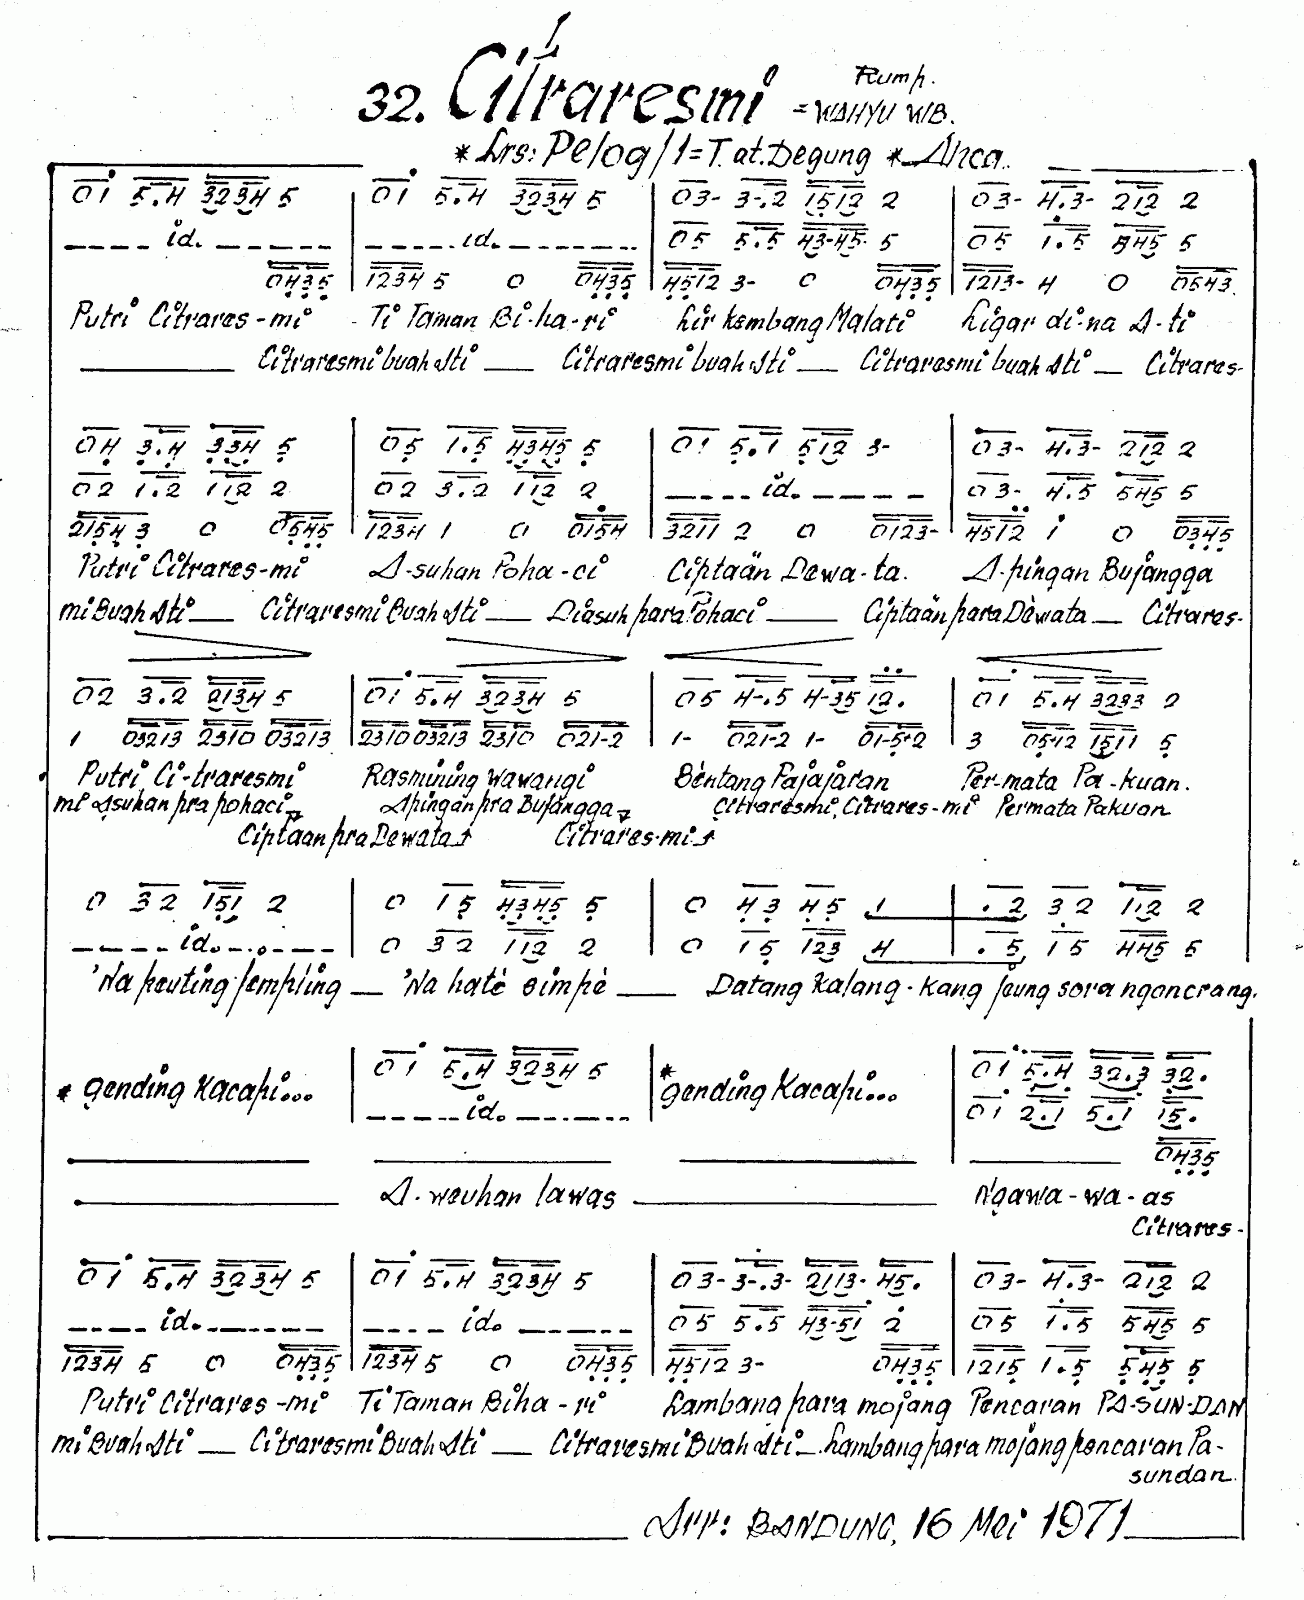 32. Citraresmi Rump. = WAHYU WB.
* Lrs: Pelog / 1 = T. at. Degung * Anca.
0 1 5.4 3234 5 | 0 1 5.4 3234 5 | 03- 3-.2 1512 2 | 03- 4.3- 212 2
---- id. ------ | ---- id. ------ | 05 5.5 43-45 5 | 05 1.5 545 5
0435 | 1234 5 0 0435 | 4512 3- 0 0435 | 1213- 4 0 0543
Putri Citrares-mi - Ti Taman Bi-ha-ri Lir kembang Malati Ligar di-na A-ti
Citraresmi buah Ati __ Citraresmi buah Ati __ Citraresmi buah Ati __ Citrares-
04 3.4 334 5 | 05 1.5 4345 5 | 01 5.1 512 3- | 03- 4.3- 212 2
02 1.2 112 2 | 02 3.2 112 2 | ---- id. ----- | 03- 4.5 545 5
2154 3 0 0545 | 1234 1 0 0154 | 3211 2 0 0123- | 4512 1 0 0345
Putri Citrares-mi A-suhan Poha-ci Ciptaän Dewa-ta. A-pingan Bujangga
mi Buah Ati __ Citraresmi Buah Ati __ Diasuh para Pohaci __ Ciptaän para Dèwata __ Citrares-
02 3.2 2134 5 | 01 5.4 3234 5 | 05 4-.5 4-35 12. | 01 5.4 3233 2
1 03213 2310 03213 | 2310 03213 2310 021-2 | 1- 021-2 1- 01-5-2 | 3 0512 1511 5
Putri Ci-traresmi Rasmining Wawangi Bèntang Pajajaran Per-mata Pa-kuan.
mi Asuhan pra pohaci Apingan pra Bujangga Citraresmi, Citrares-mi Permata Pakuan
Ciptaan pra Dewata Citrares-mi
0 32 151 2 | 0 15 4345 5 | 0 43 45 1 | . 2 32 112 2
---- id. ----- | 0 32 112 2 | 0 15 123 4 | . 5 15 445 5
'Na peuting jempling __ 'Na hatè simpè __ Datang kalang-kang jeung sora ngoncrang.
* gending Kacapi... | 01 5.4 3234 5 | * gending Kacapi... | 01 5.4 32.3 32.
---- id. ------ | 01 2.1 5.1 15.
0435
A-weuhan lawas Ngawa-wa-as
Citrares-
01 5.4 3234 5 | 01 5.4 3234 5 | 03- 3-.3- 2113- 45. | 03- 4.3- 212 2
---- id. ------ | ---- id. ------ | 05 5.5 43-51 2 | 05 1.5 545 5
1234 5 0 0435 | 1234 5 0 0435 | 4512 3- 0435 | 1215 1.5 545 5
Putri Citrares-mi Ti Taman Biha-ri Lambang para mojang Pencaran PA-SUN-DAN
mi Buah Ati __ Citraresmi Buah Ati __ Citraresmi Buah Ati __ Lambang para mojang pencaran Pa-
sundan.
Arr: BANDUNG, 16 Mei 1971